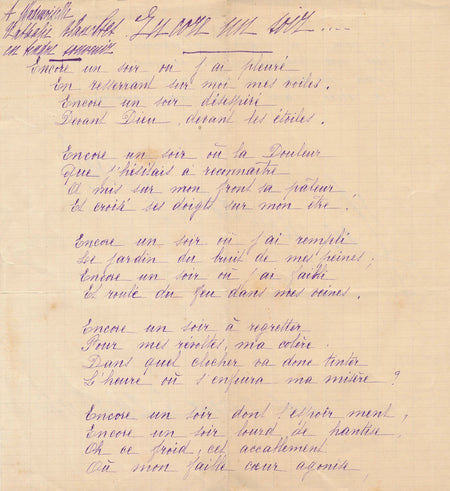 A Mademoiselle
en tendre souvenir
Encore un soir....
Encore un soir où j'ai pleuré
En resserrant sur moi mes voiles.
Encore un soir désespéré
Devant Dieu, devant les étoiles.
Encore un soir où la Douleur
Que j'hésitais à reconnaître
A mis sur mon front sa pâleur
Et croisé ses doigts sur mon être.
Encore un soir où j'ai rempli
Le jardin du bruit de mes peines;
Encore un soir où j'ai faibli
Et roulé du feu dans mes veines.
Encore un soir à regretter
Pour mes révoltes, ma colère.
Dans quel clocher va donc tinter
L'heure où s'enfuira ma misère ?
Encore un soir dont l'espoir ment,
Encore un soir lourd de hantise,
Oh ce froid, cet accablement
Où mon faible cœur agonise,